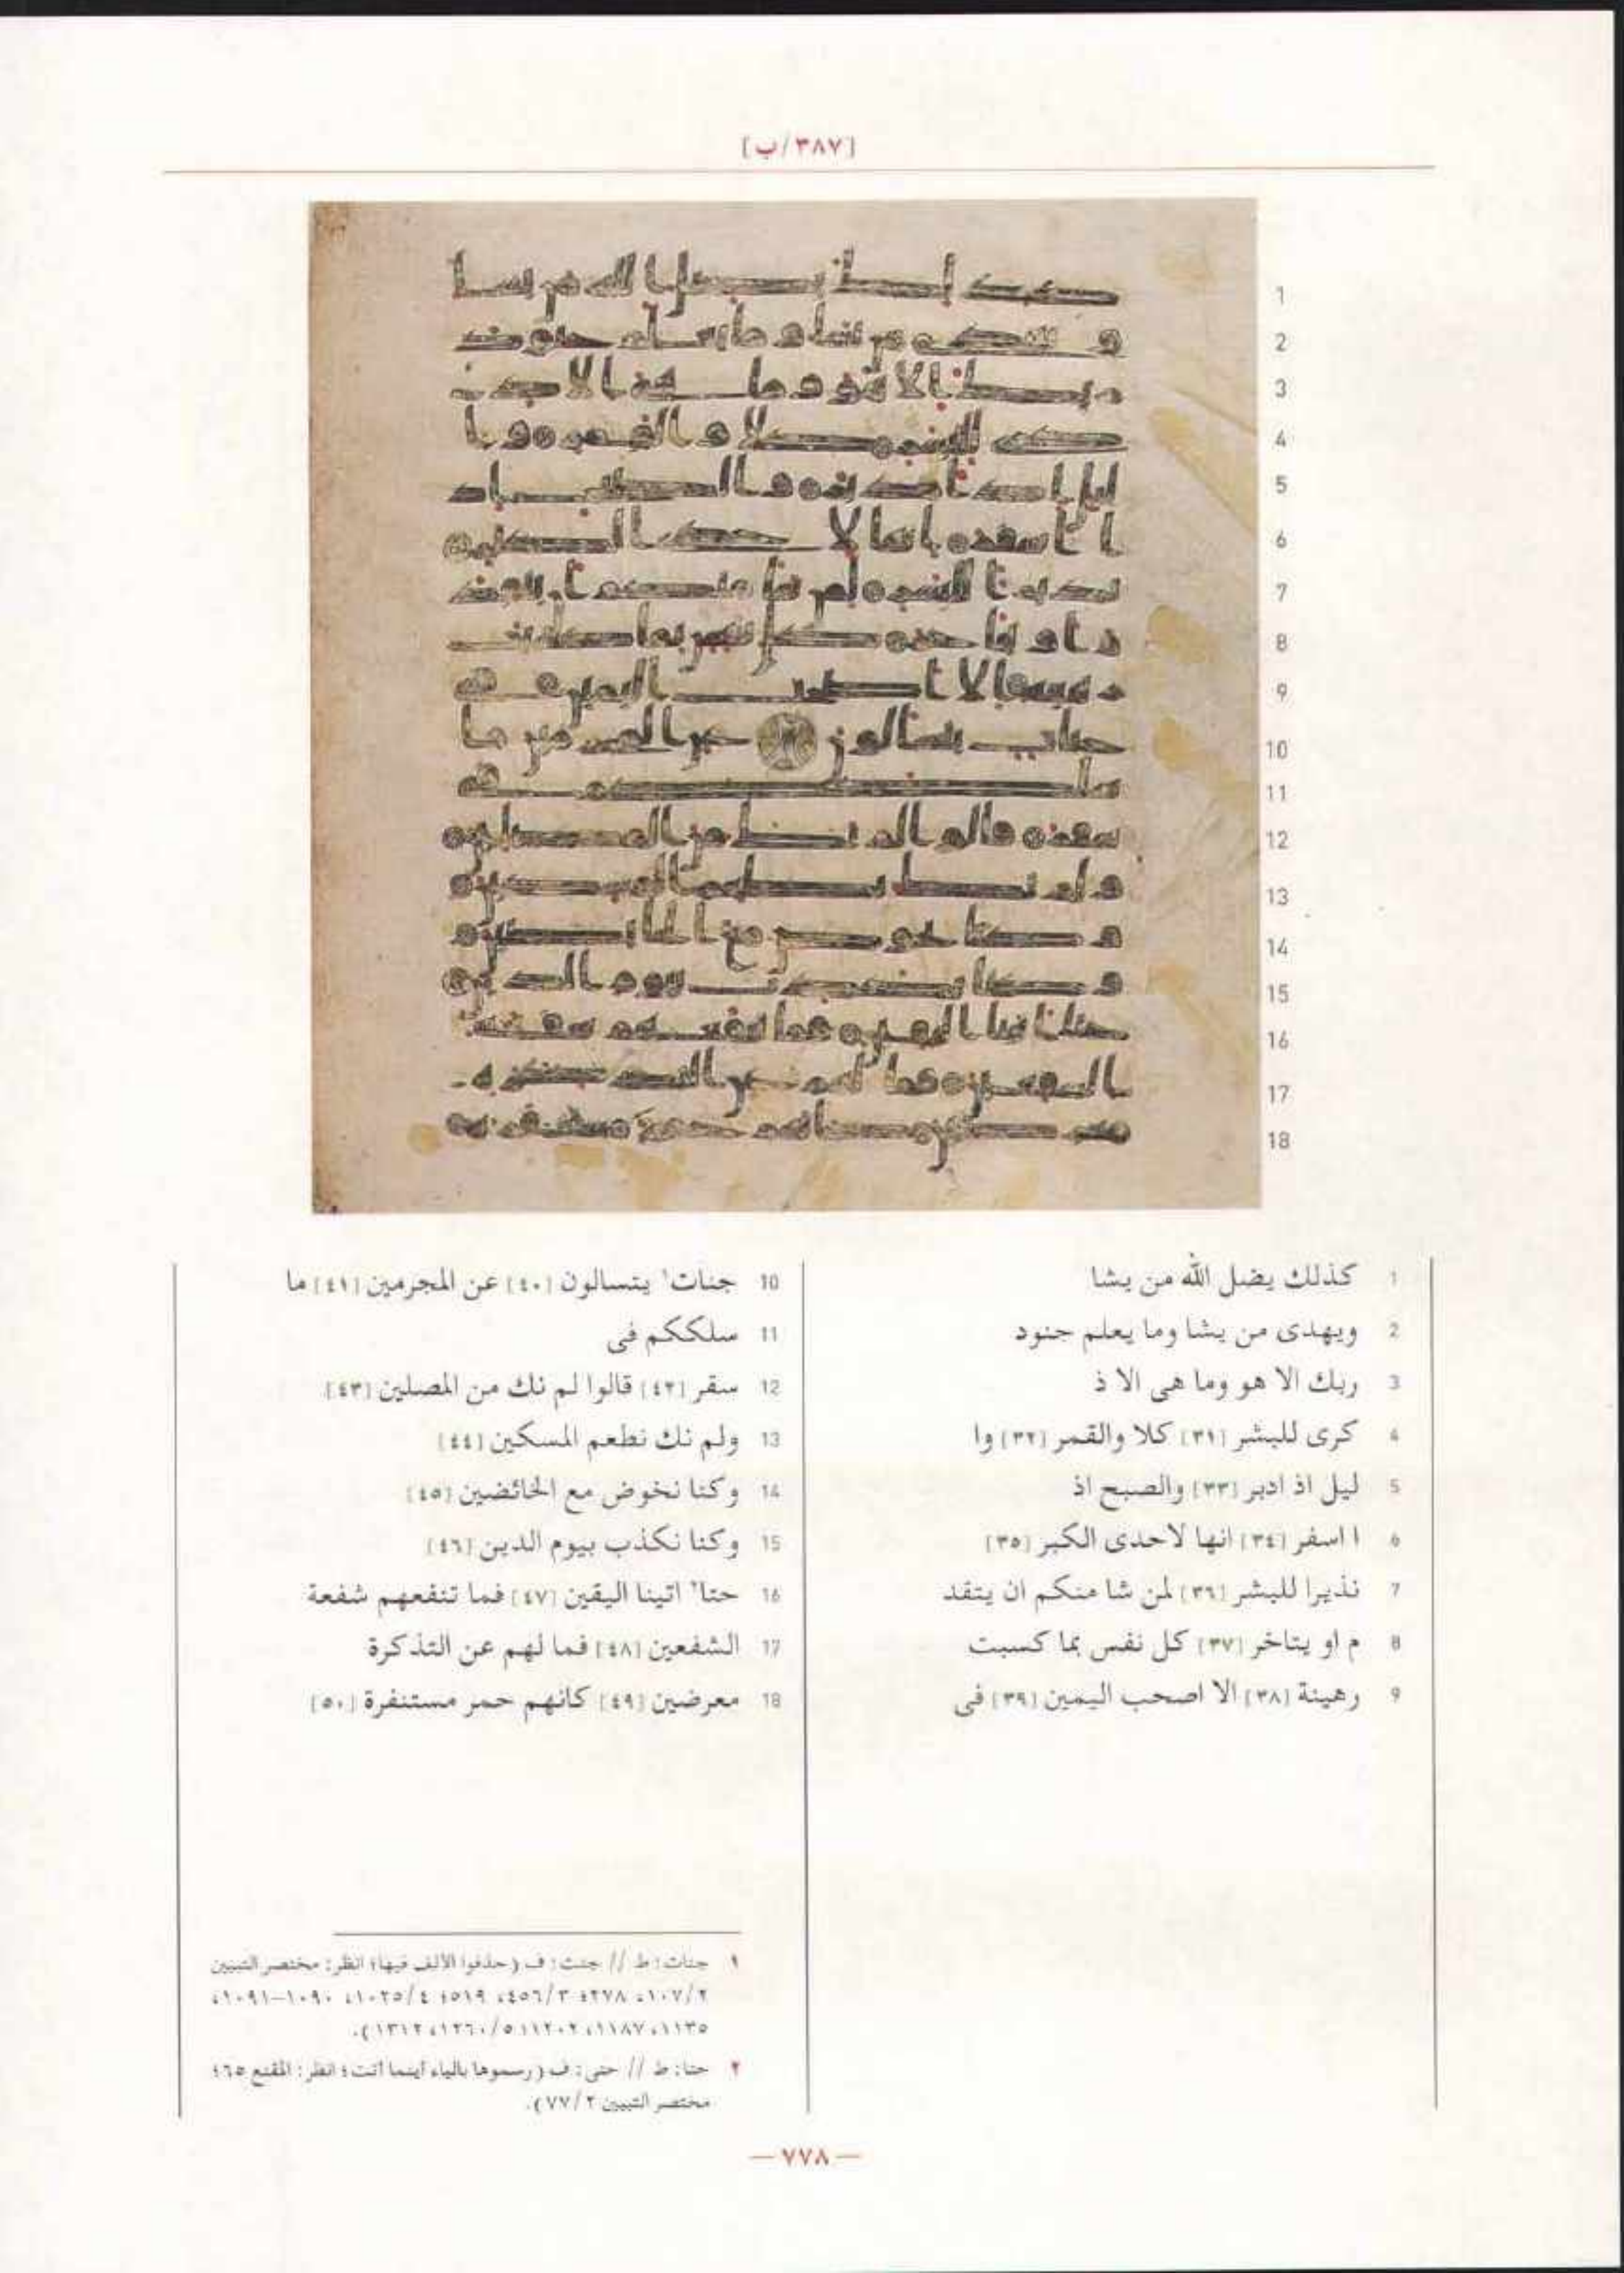 [٣٨٧/ب]
1 كذلك يضل الله من يشا
2 ويهدى من يشا وما يعلم جنود
3 ربك الا هو وما هى الا ذ
4 كرى للبشر [٣١] كلا والقمر [٣٢] وا
5 ليل اذ ادبر [٣٣] والصبح اذ
6 ا اسفر [٣٤] انها لاحدى الكبر [٣٥]
7 نذيرا للبشر [٣٦] لمن شا منكم ان يتقد
8 م او يتاخر [٣٧] كل نفس بما كسبت
9 رهينة [٣٨] الا اصحب اليمين [٣٩] فى
10 جنات١ يتسالون [٤٠] عن المجرمين [٤١] ما
11 سلككم فى
12 سقر [٤٢] قالوا لم نك من المصلين [٤٣]
13 ولم نك نطعم المسكين [٤٤]
14 وكنا نخوض مع الخائضين [٤٥]
15 وكنا نكذب بيوم الدين [٤٦]
16 حتا٢ اتينا اليقين [٤٧] فما تنفعهم شفعة
17 الشفعين [٤٨] فما لهم عن التذكرة
18 معرضين [٤٩] كانهم حمر مستنفرة [٥٠]
١ جنات: ط // جنت: ف (حذفوا الألف فيها؛ انظر: مختصر التبيين
٢/١٠٧، ٢٧٨؛ ٣/٤٥٦، ٥١٩؛ ٤/١٠٢٥، ١٠٩٠–١٠٩١،
١١٣٥، ١١٨٧، ١٢٠٢؛ ٥/١٢٦٠، ١٣١٢).
٢ حتا: ط // حتى: ف (رسموها بالياء أينما أتت؛ انظر: المقنع ٦٥؛
مختصر التبيين ٢/٧٧).
— ٧٧٨ —